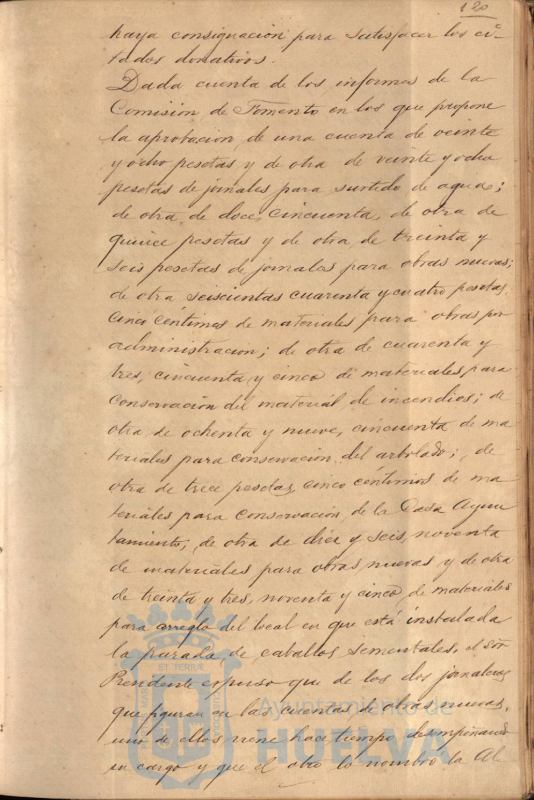 120
haya consignación para satisfacer los ci-
tados donativos.
Dada cuenta de los informes de la
Comisión de Fomento en los que propone
la aprobacion de una cuenta de veinte
y ocho pesetas y de otra de veinte y ocho
pesetas de jornales para surtido de aguas;
de otra de doce, cincuenta, de otra de
quince pesetas y de otra de treinta y
seis pesetas de jornales para obras nuevas;
de otra seiscientas cuarenta y cuatro pesetas,
cinco céntimos de materiales para obras por
administracion; de otra de cuarenta y
tres, cincuenta y cinco de materiales para
conservación del material de incendios; de
otra de ochenta y nueve, cincuenta de ma
teriales para conservacion del arbolado; de
otra de trece pesetas, cinco céntimos de ma
teriales para conservación de la Casa Ayun
tamiento; de otra de diez y seis, noventa
de materiales para obras nuevas y de otra
de treinta y tres, noventa y cinco de materiales
para arreglo del local en que está instalada
la parada de caballos sementales, el Sor
Presidente expuso que de los dos jornaleros
que figuran en las cuentas de obras nuevas,
uno de ellos viene hace tiempo desempeñando
su cargo y que el otro lo nombró la Al
Ayuntamiento de
HUELVA